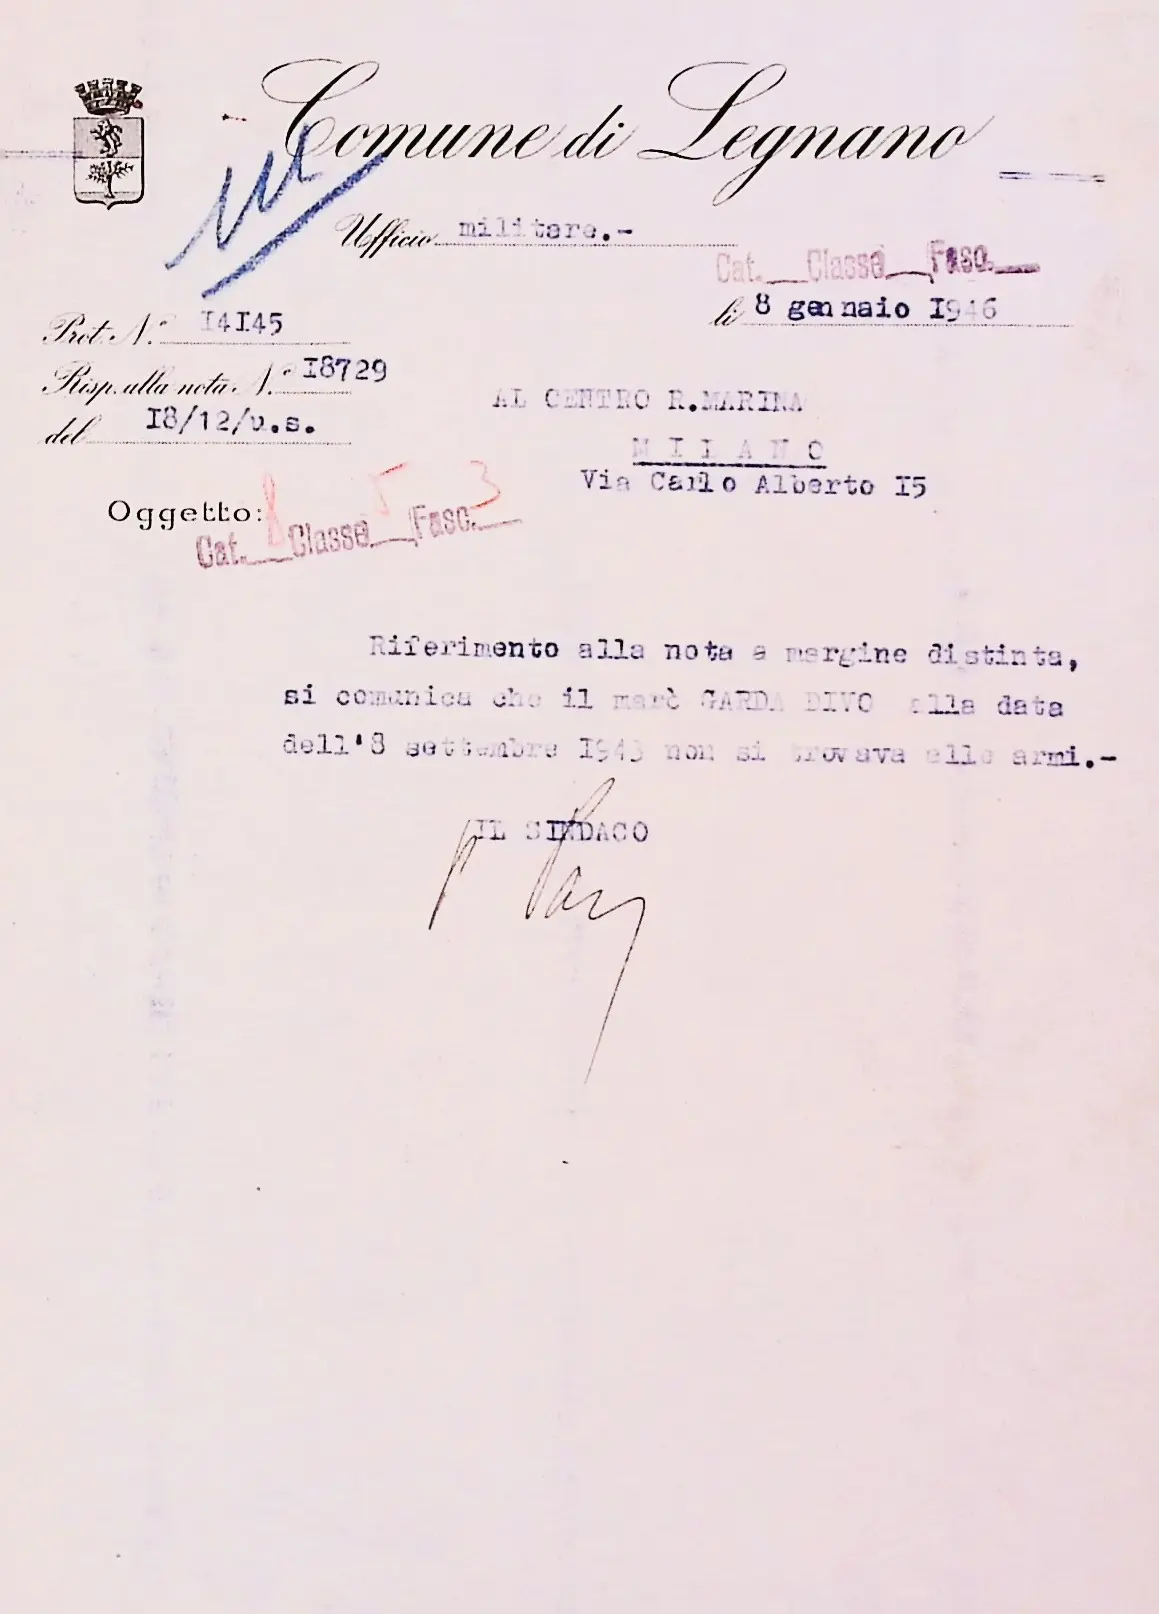 Comune di Legnano
Ufficio militare.-
Cat. Classe Fasc.
li 8 gennaio 1946
Prot. N.° 14145
Risp. alla nota N.° 18729
del 18/12/u.s.
AL CENTRO R.MARINA
MILANO
Via Carlo Alberto 15
Oggetto:
Cat. 8 Classe 5 Fasc. 3
Riferimento alla nota a margine distinta,
si comunica che il marò GARDA DIVO alla data
dell'8 settembre 1943 non si trovava alle armi.-
IL SINDACO